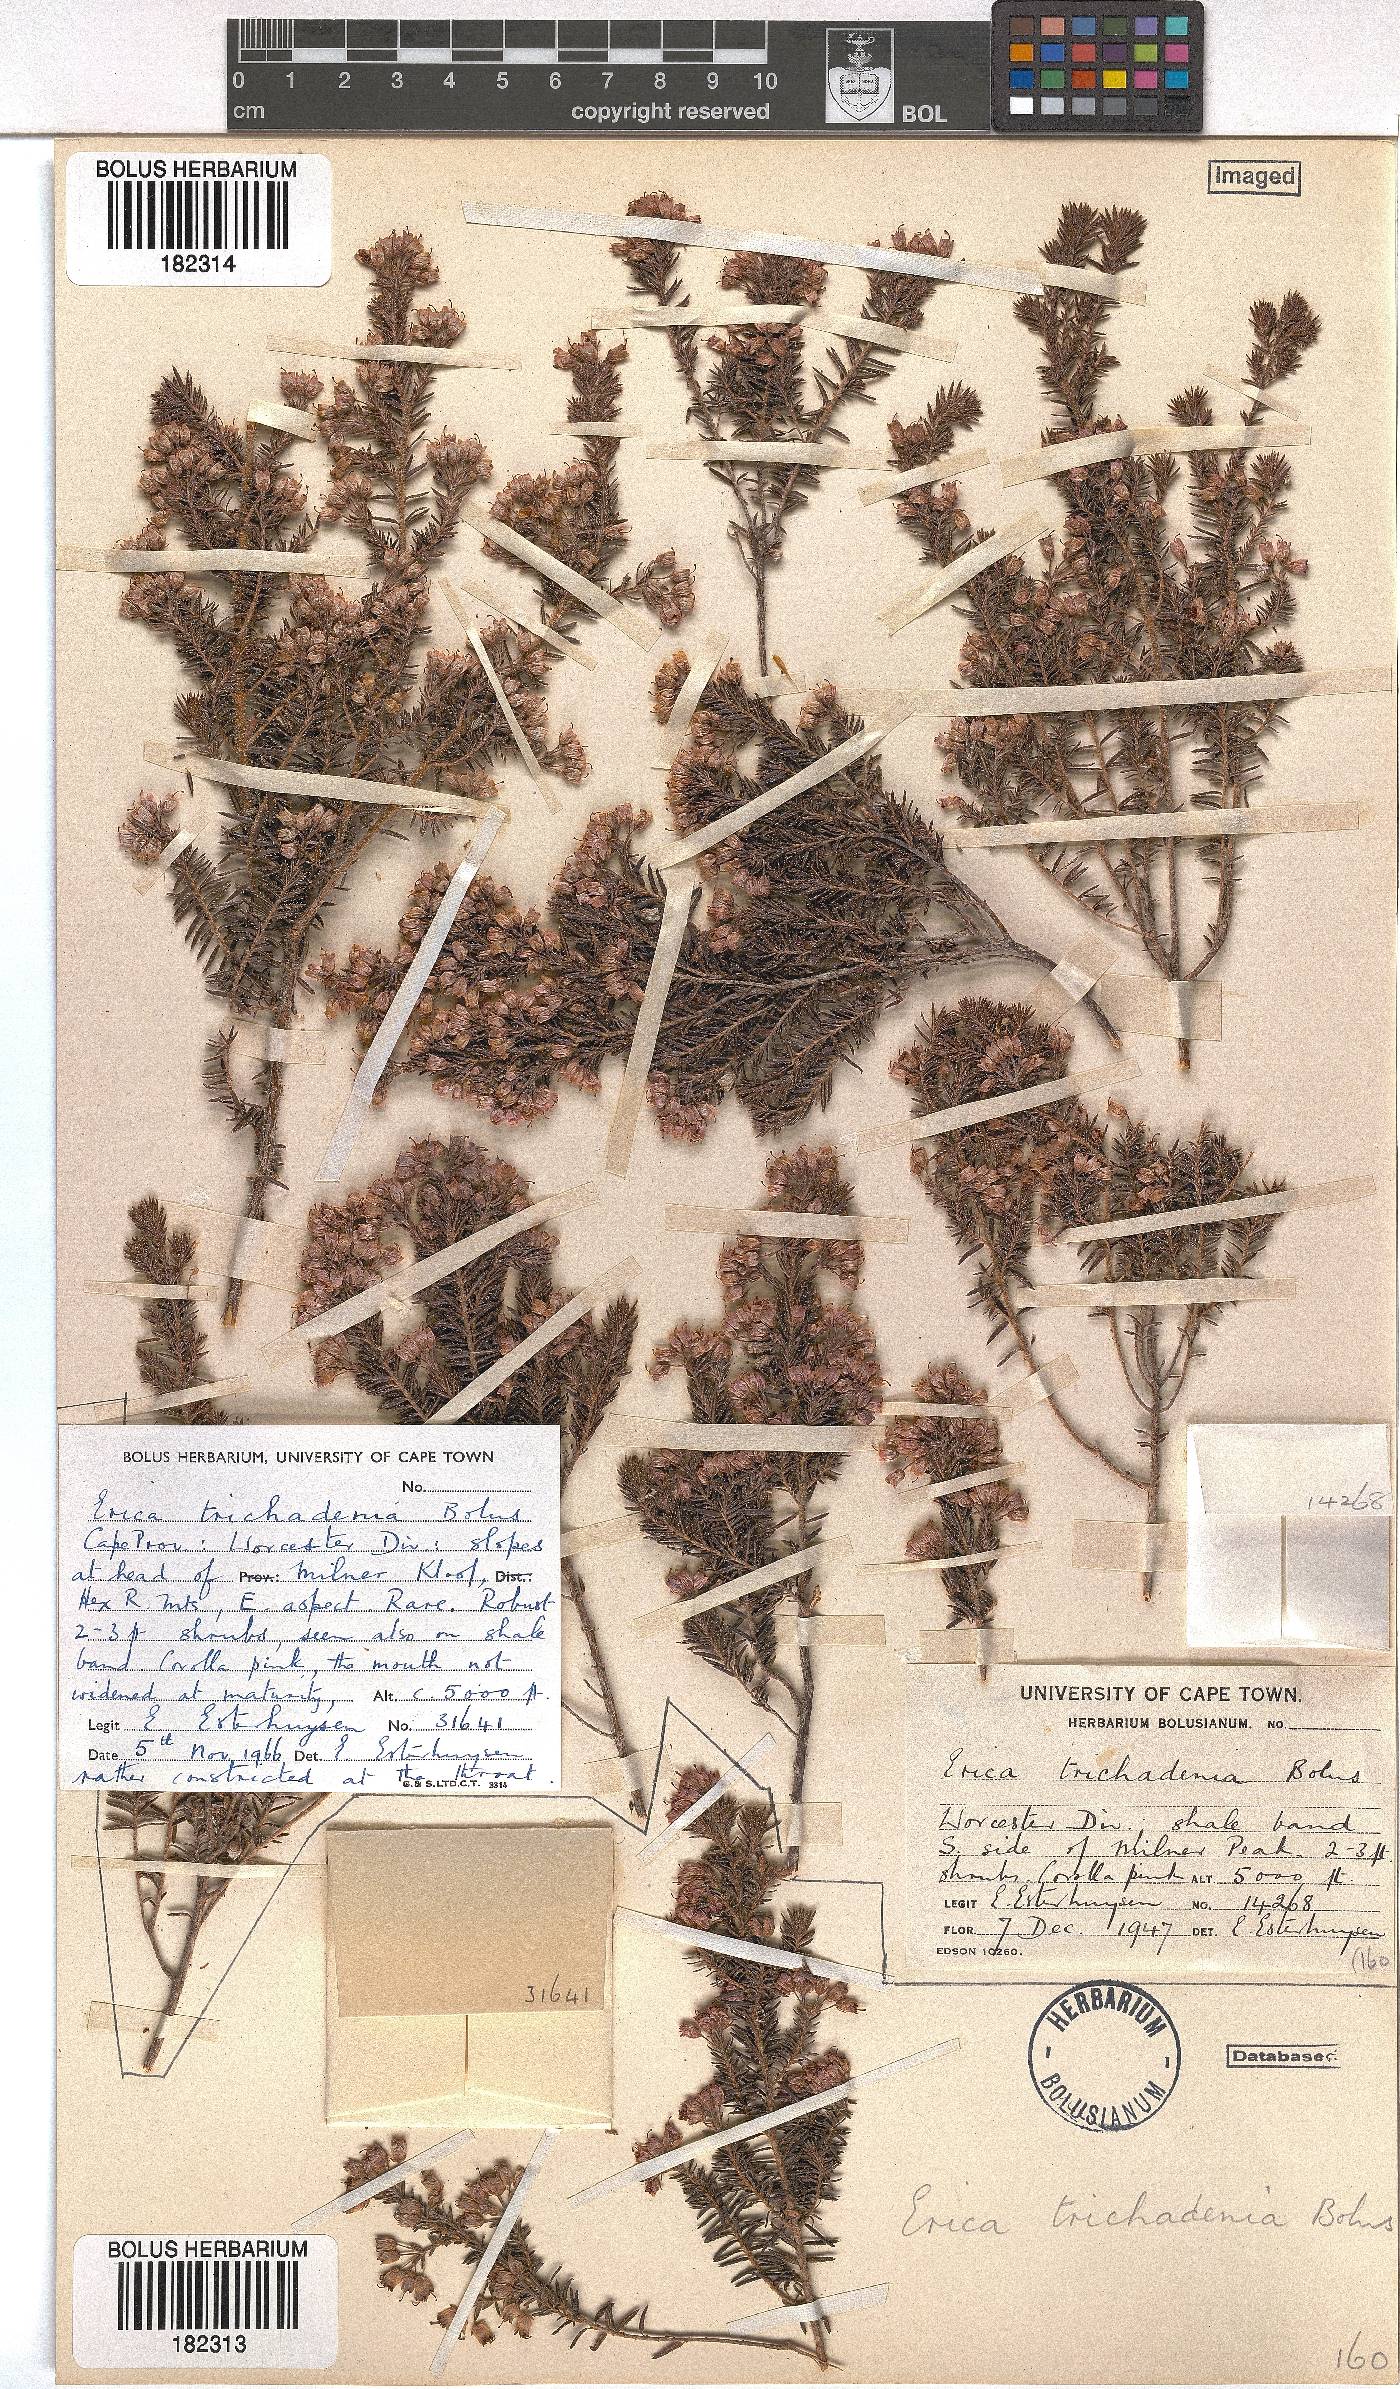 0 1 2 3 4 5 6 7 8 9 10
cm copyright reserved BOL
BOLUS HERBARIUM
182314
Imaged
BOLUS HERBARIUM, UNIVERSITY OF CAPE TOWN
No.
Erica trichadenia Bolus
Cape Prov.: Worcester Div.: slopes
at head of Prov.: Milner Kloof, Dist.:
Hex R. Mts, E. aspect. Rare. Robust
2-3 ft shrubs, seen also on shale
band. Corolla pink, the mouth not
widened at maturity, Alt. c. 5000 ft.
Legit E Esterhuysen No. 31641
Date 5th Nov. 1966 Det. E Esterhuysen
rather constricted at the throat.
G. & S. LTD. C.T. 3314
14268
UNIVERSITY OF CAPE TOWN.
HERBARIUM BOLUSIANUM. NO.
Erica trichadenia Bolus
Worcester Div.; shale band
S. side of Milner Peak. 2-3 ft
shrubs. Corolla pink ALT 5000 ft.
LEGIT E. Esterhuysen NO. 14268
FLOR. 7 Dec. 1947 DET. E Esterhuysen
EDSON 10260.
(160
31641
HERBARIUM
BOLUSIANUM
Database
Erica trichadenia Bolus
BOLUS HERBARIUM
182313
160